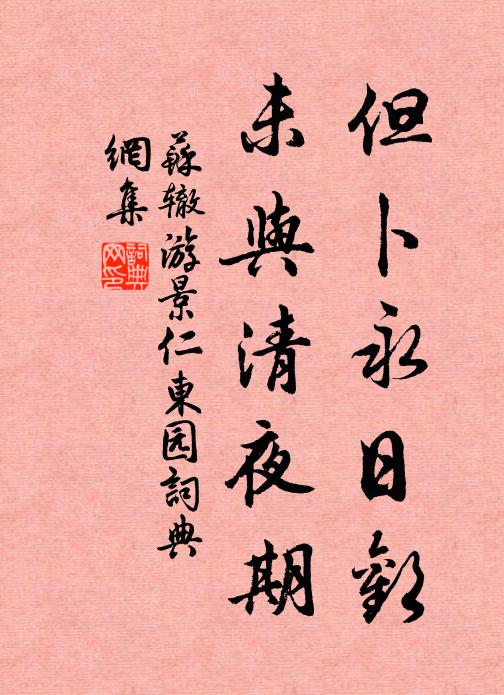 但卜永日歡
未與清夜期
蘇辙游景仁東园詞典
網集
詞典網印